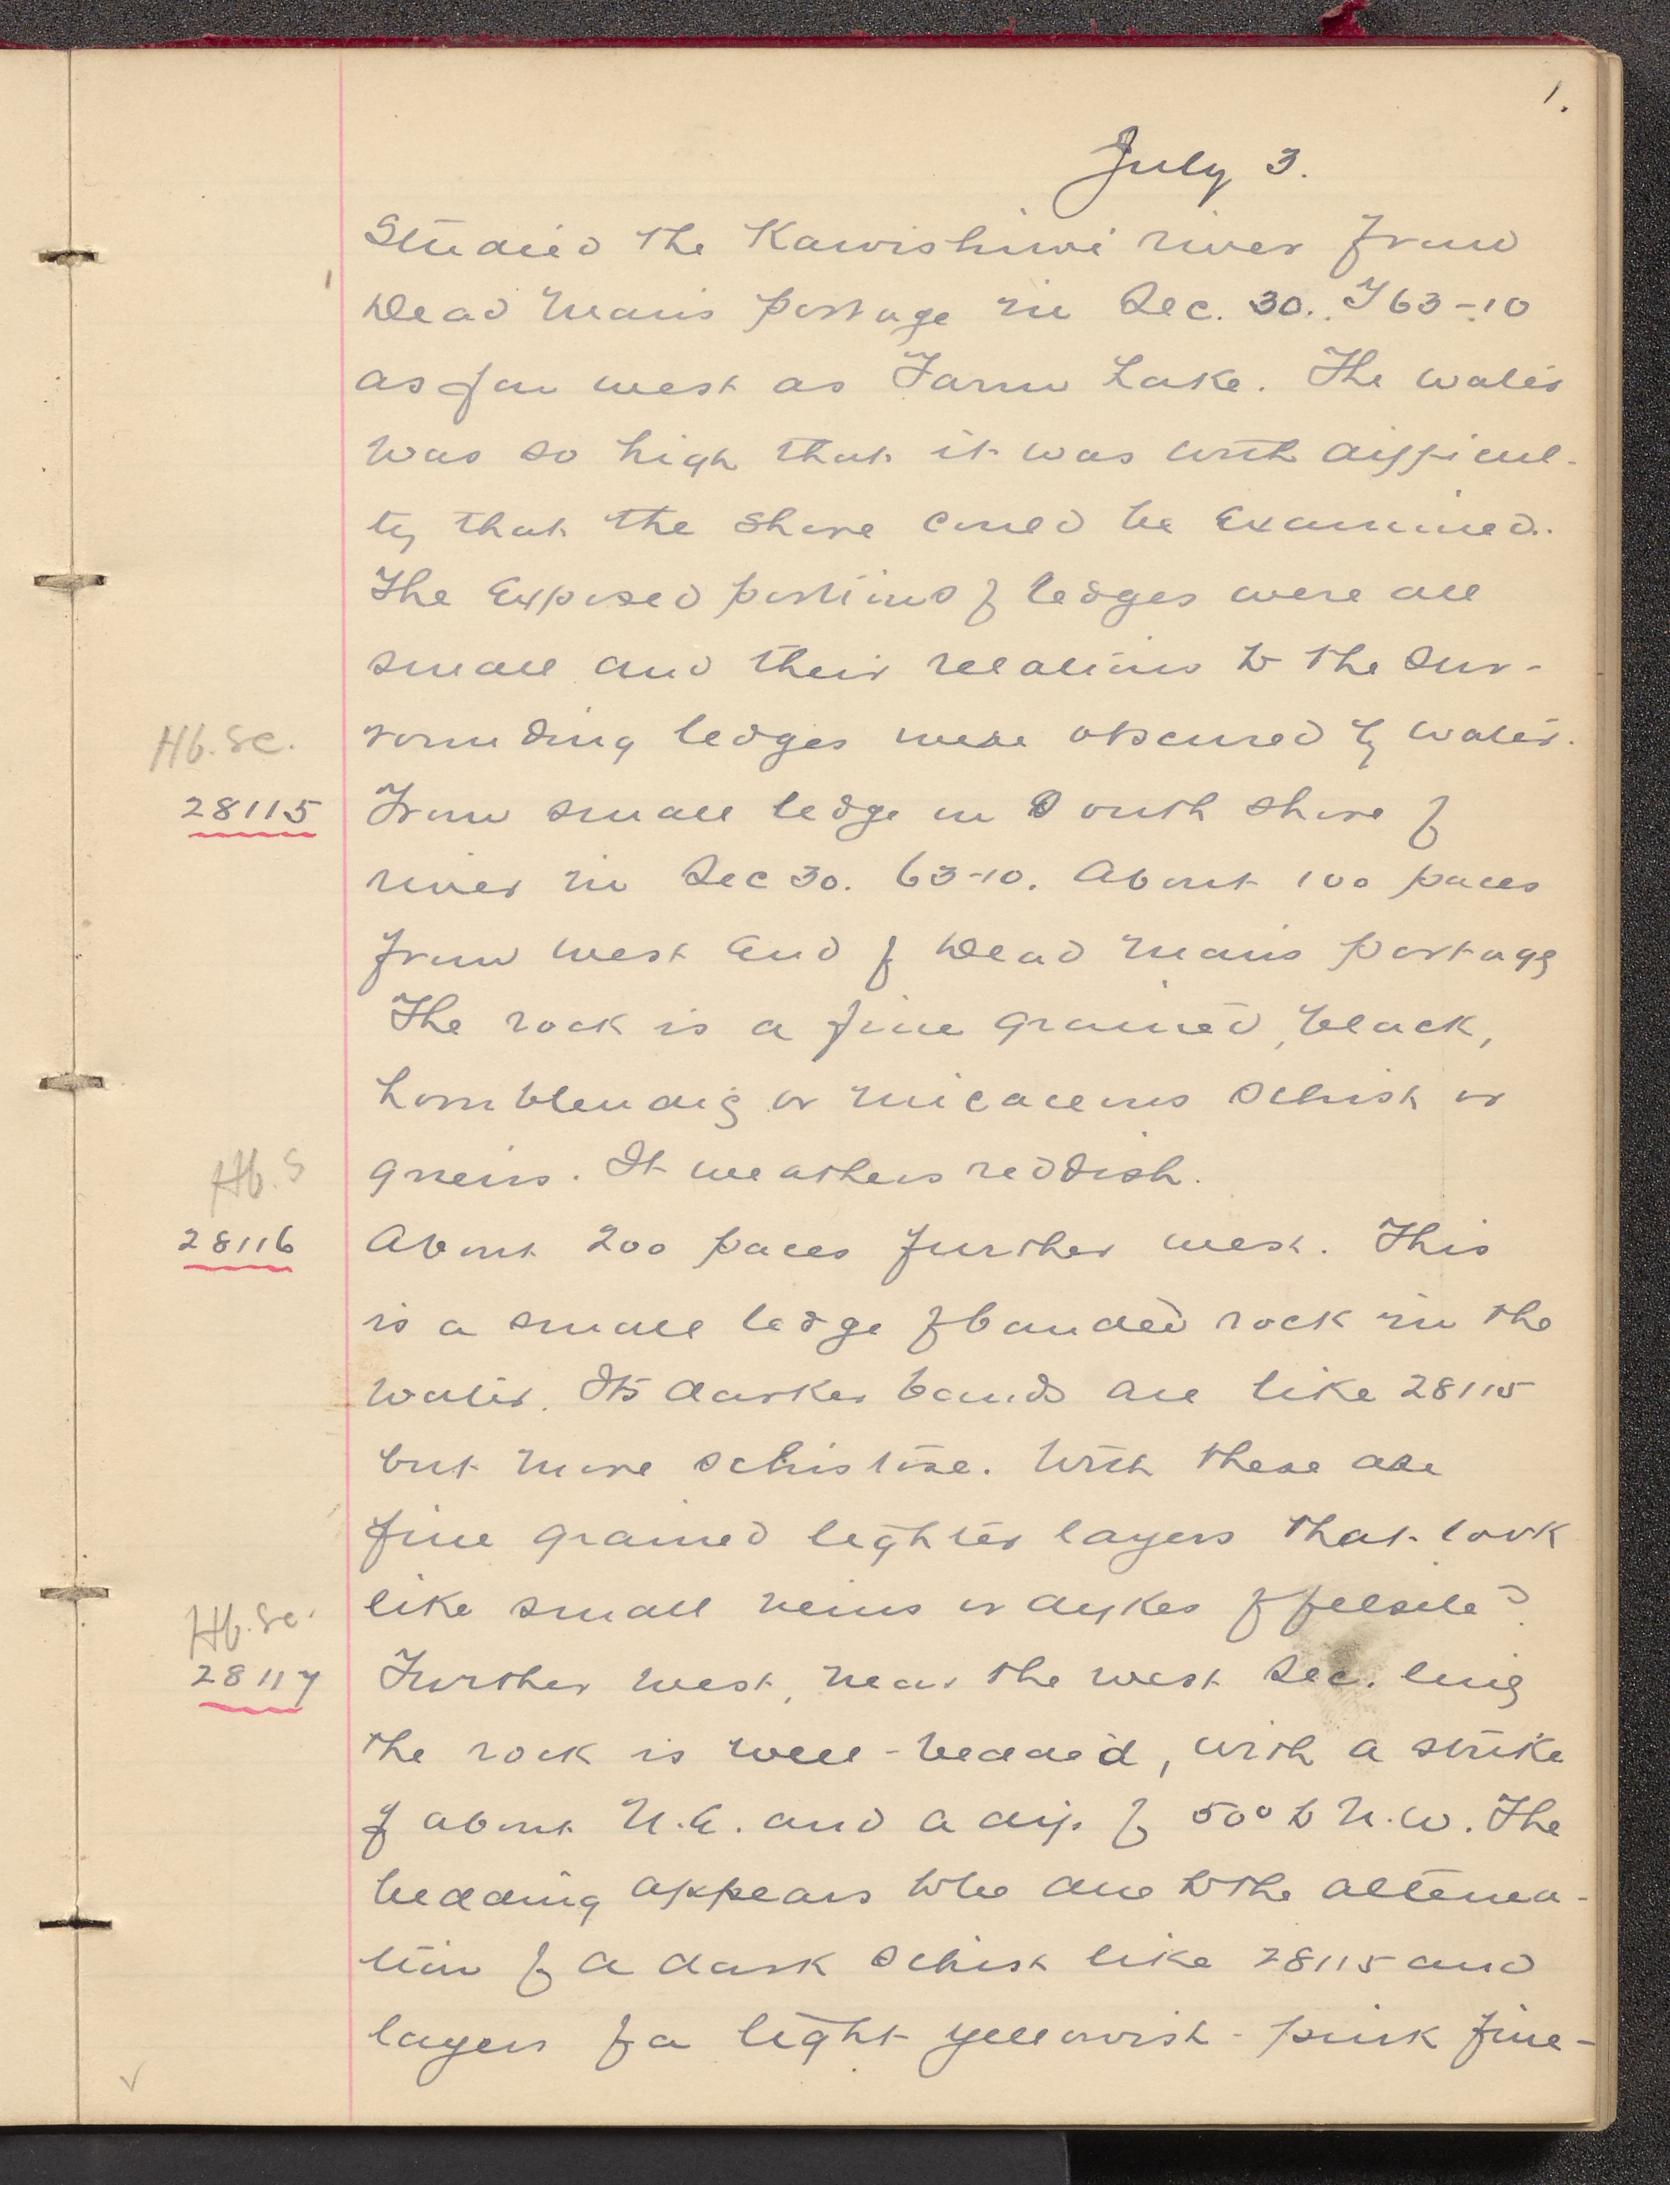 1.
July 3.
Studied the Kawishiwi river from
Dead Man's portage in Sec. 30. T63-10
as far west as Farm Lake. The water
was so high that it was with difficul-
ty that the shore could be examined.
The exposed portions of ledges were all
small and their relations to the sur-
rounding ledges were obscured by water.
Hb. Sc.
28115 From small ledge on South shore of
river in Sec 30. 63-10. About 100 paces
from west end of Dead Man's portage
The rock is a fine grained, black,
hornblendic or micaceous schist or
gneiss. It weathers reddish.
Hb. S
28116 About 200 paces further west. This
is a small ledge of banded rock in the
water. Its darker bands are like 28115
but more schistose. With these are
fine grained lighter layers that look
like small veins or dykes of felsite?
Hb. Sc.
28117 Further west, near the west Sec. line
the rock is well-bedded, with a strike
of about N.E. and a dip of 50° to N.W. The
bedding appears to be due to the alterna-
tion of a dark schist like 28115 and
layers of a light yellowish-pink fine-